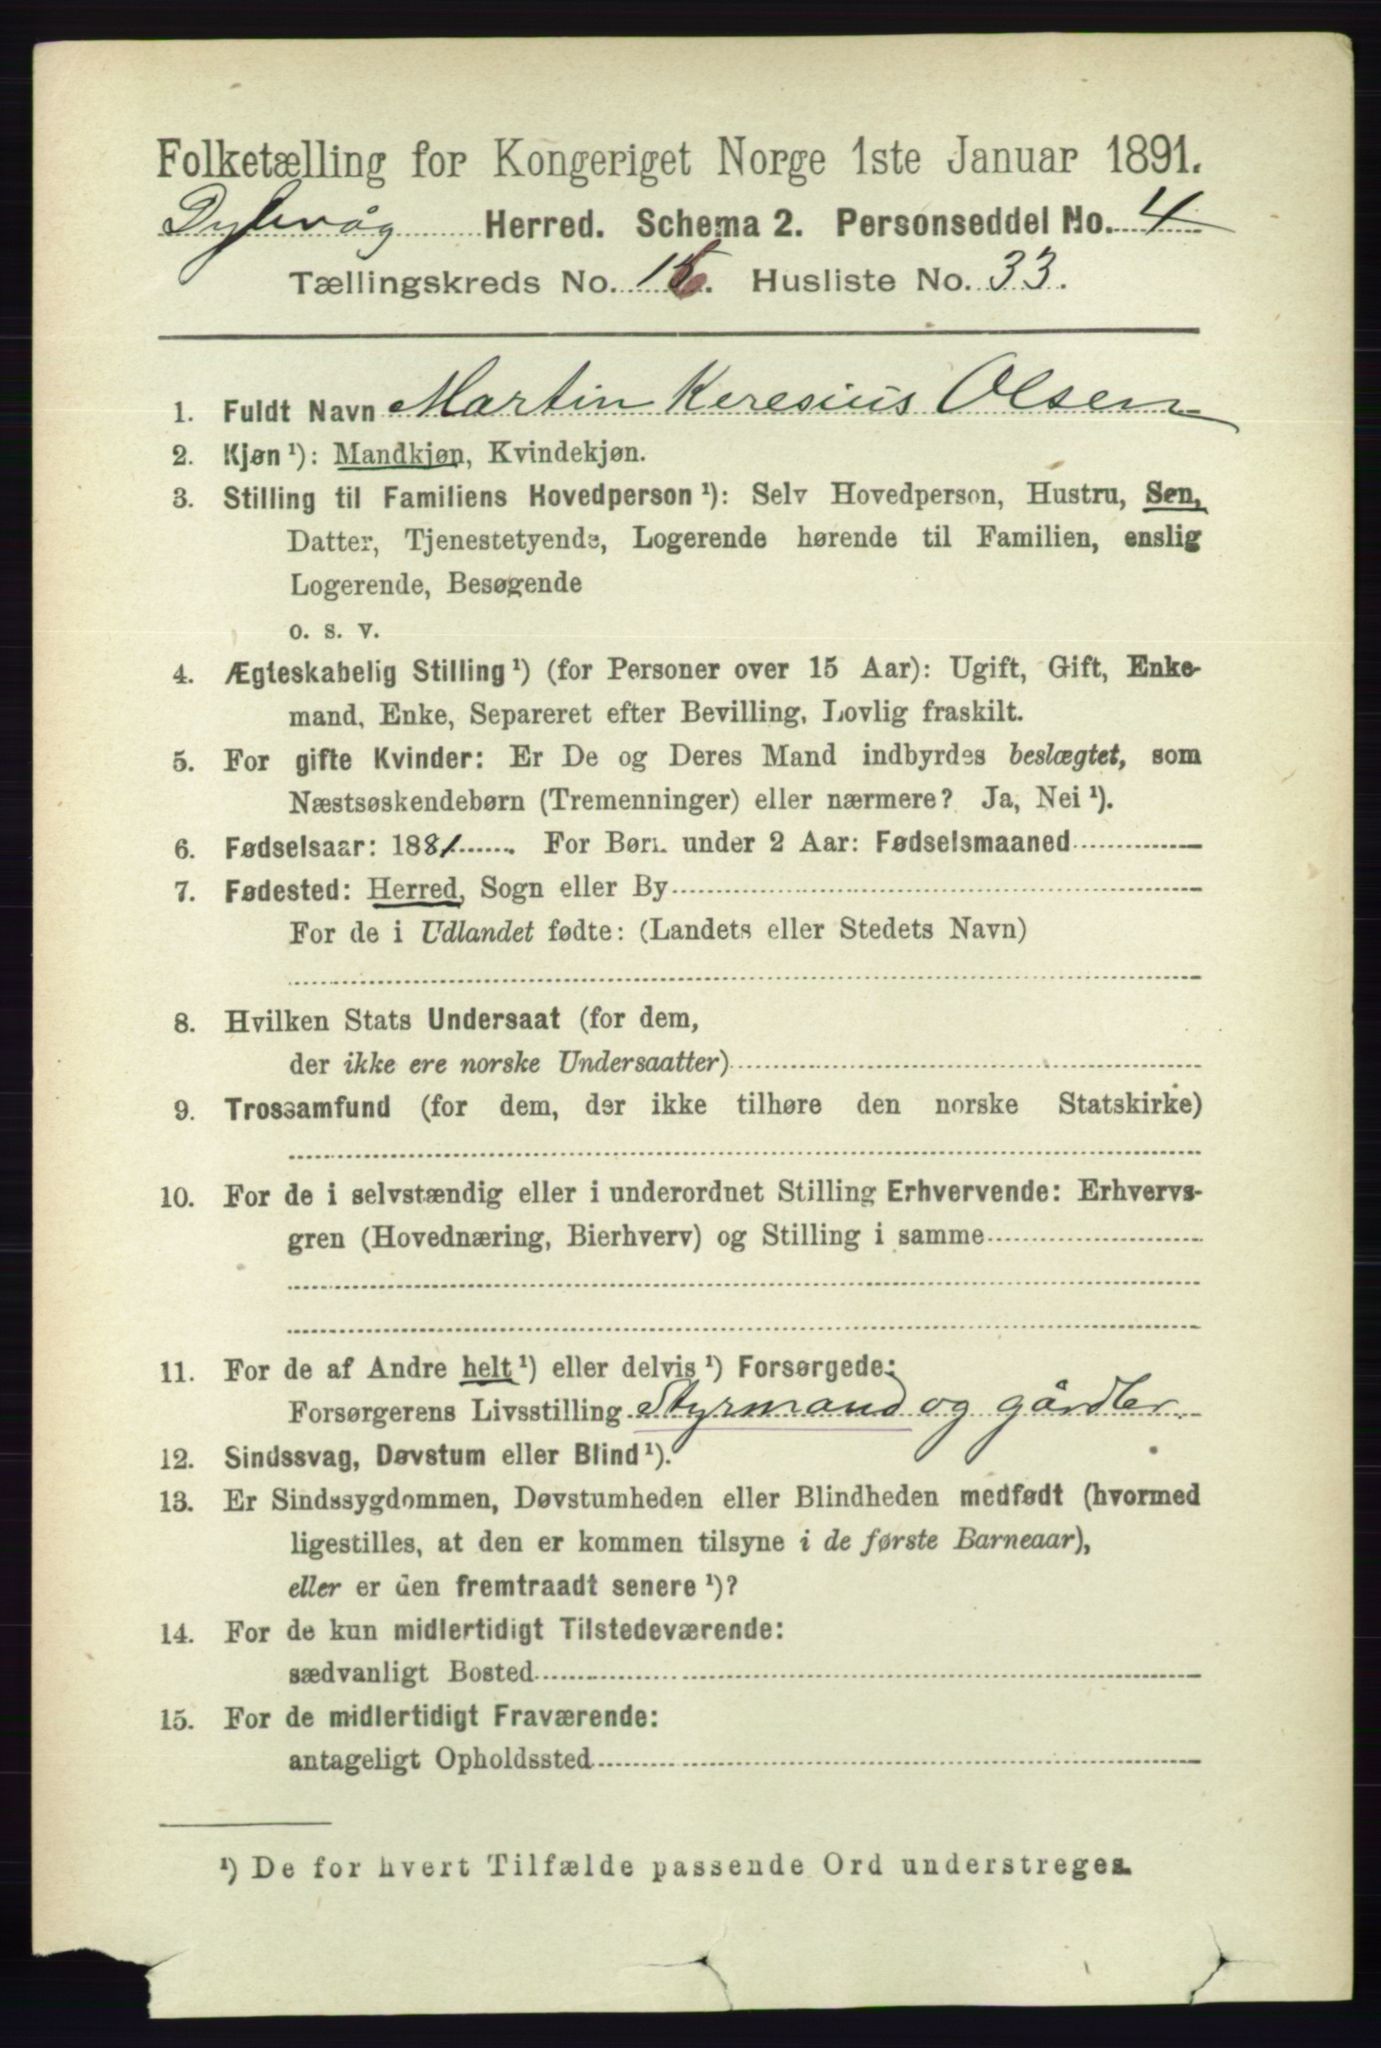 Folketælling for Kongeriget Norge 1ste Januar 1891.
Dybvåg Herred. Schema 2. Personseddel No. 4
Tællingskreds No. 16. Husliste No. 33.
1. Fuldt Navn Martin Keresius Olsen
2. Kjøn ¹): Mandkjøn, Kvindekjøn.
3. Stilling til Familiens Hovedperson ¹): Selv Hovedperson, Hustru, Søn,
Datter, Tjenestetyende, Logerende hørende til Familien, enslig
Logerende, Besøgende
o. s. v.
4. Ægteskabelig Stilling ¹) (for Personer over 15 Aar): Ugift, Gift, Enke-
mand, Enke, Separeret efter Bevilling, Lovlig fraskilt.
5. For gifte Kvinder: Er De og Deres Mand indbyrdes beslægtet, som
Næstsøskendebørn (Tremenninger) eller nærmere? Ja, Nei ¹).
6. Fødselsaar: 1881. For Børn under 2 Aar: Fødselsmaaned
7. Fødested: Herred, Sogn eller By
For de i Udlandet fødte: (Landets eller Stedets Navn)
8. Hvilken Stats Undersaat (for dem,
der ikke ere norske Undersaatter)
9. Trossamfund (for dem, der ikke tilhøre den norske Statskirke)
10. For de i selvstændig eller i underordnet Stilling Erhvervende: Erhvervs-
gren (Hovednæring, Bierhverv) og Stilling i samme
11. For de af Andre helt ¹) eller delvis ¹) Forsørgede:
Forsørgerens Livsstilling Styrmand og gårdbr.
12. Sindssvag, Døvstum eller Blind ¹).
13. Er Sindssygdommen, Døvstumheden eller Blindheden medfødt (hvormed
ligestilles, at den er kommen tilsyne i de første Barneaar),
eller er den fremtraadt senere ¹)?
14. For de kun midlertidigt Tilstedeværende:
sædvanligt Bosted
15. For de midlertidigt Fraværende:
antageligt Opholdssted
¹) De for hvert Tilfælde passende Ord understreges.